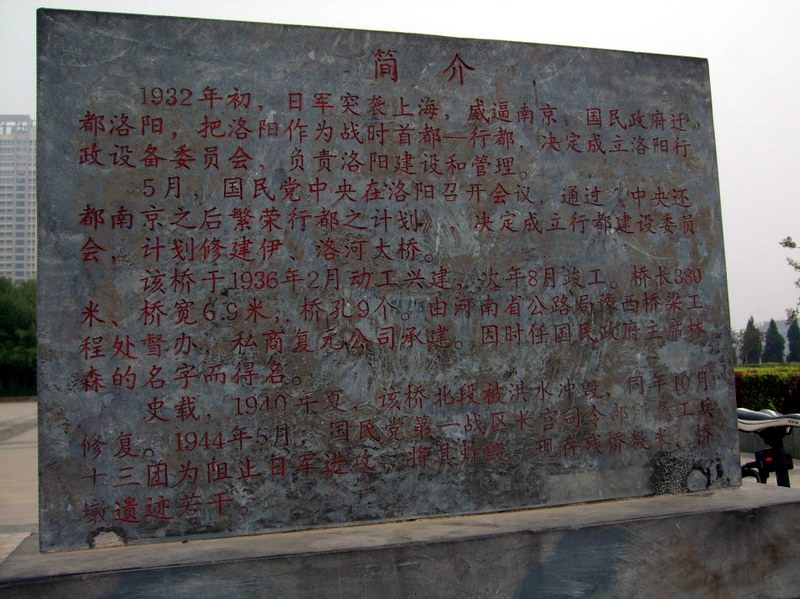 简 介
1932年初，日军突袭上海，威逼南京，国民政府迁
都洛阳，把洛阳作为战时首都—行都，决定成立洛阳行
政设备委员会，负责洛阳建设和管理。
5月，国民党中央在洛阳召开会议，通过《中央还
都南京之后繁荣行都之计划》，决定成立行都建设委员
会，计划修建伊、洛河大桥。
该桥于1936年2月动工兴建，次年8月竣工。桥长380
米、桥宽6.9米，桥孔9个。由河南省公路局豫西桥梁工
程处督办，私商复元公司承建。因时任国民政府主席林
森的名字而得名。
史载，1940年夏，该桥北段被洪水冲毁，同年10月
修复。1944年5月，国民党第一战区长官司令部 工兵
十三团为阻止日军进攻，将其炸毁。现存残桥数米、桥
墩遗迹若干。